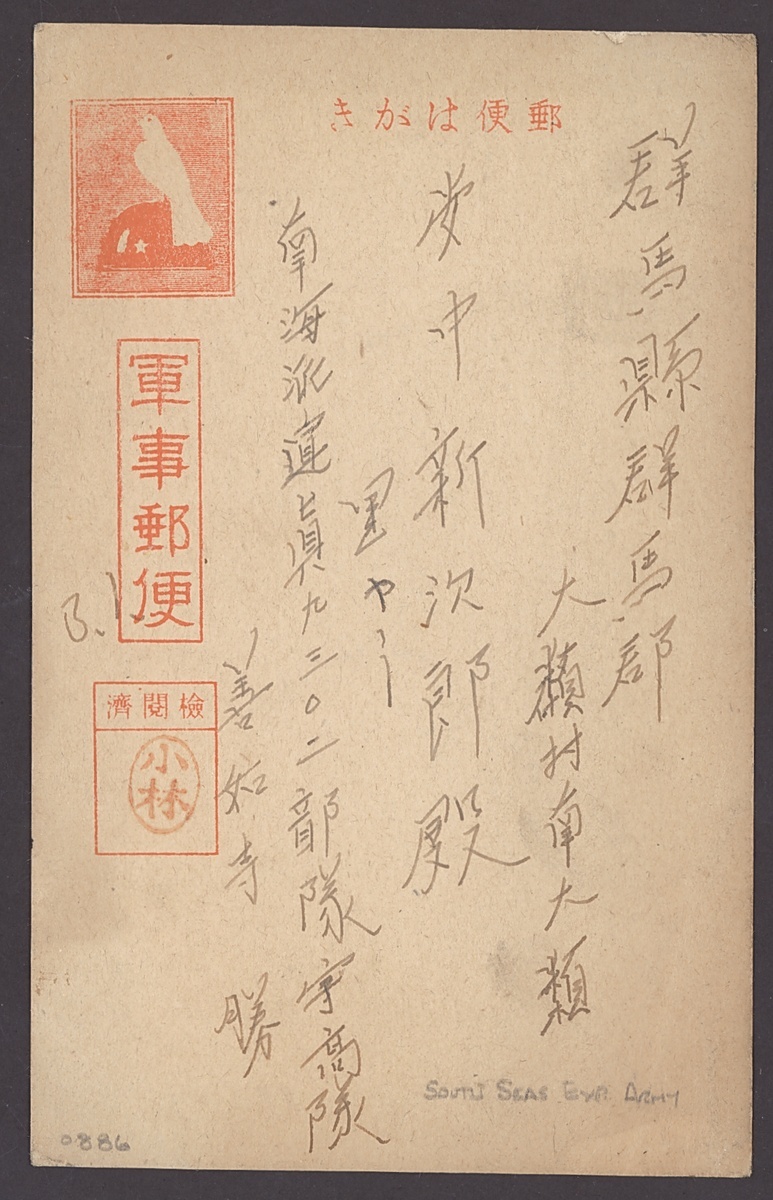 郵便はがき
群馬縣群馬郡
大類村南大類
安中新次郎殿
南海派遣眞九三〇二部隊宇高隊
善如寺 勝
軍事郵便
檢閲濟
小林
SOUTH SEAS EXP. ARMY
0886